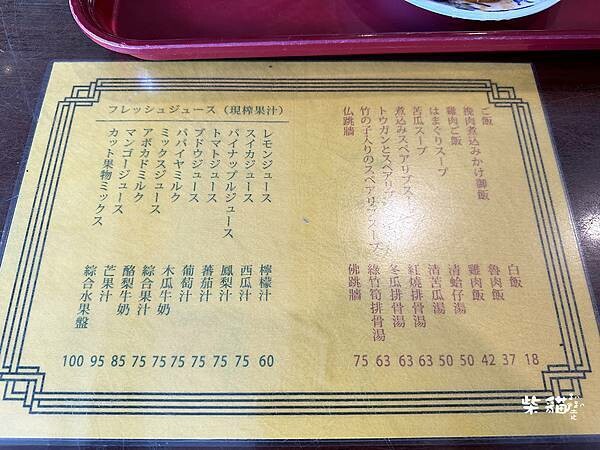 ご飯
挽肉煮込みかけ御飯
雞肉ご飯
はまぐりスープ
苦瓜スープ
煮込みスペアリブスープ
トウガンとスペアリブスープ
竹の子入りのスペアリブスープ
仏跳牆
白飯
魯肉飯
雞肉飯
清蛤仔湯
清苦瓜湯
紅燒排骨湯
冬瓜排骨湯
綠竹筍排骨湯
佛跳牆
75 63 63 63 50 50 42 37 18
フレッシュジュース（現榨果汁）
レモンジュース
スイカジュース
パイナップルジュース
トマトジュース
ブドウジュース
パパイヤミルク
ミックスジュース
アボカドミルク
マンゴージュース
カット果物ミックス
檸檬汁
西瓜汁
鳳梨汁
蕃茄汁
葡萄汁
木瓜牛奶
綜合果汁
酪梨牛奶
芒果汁
綜合水果盤
100 95 85 75 75 75 75 75 75 60
柴貓